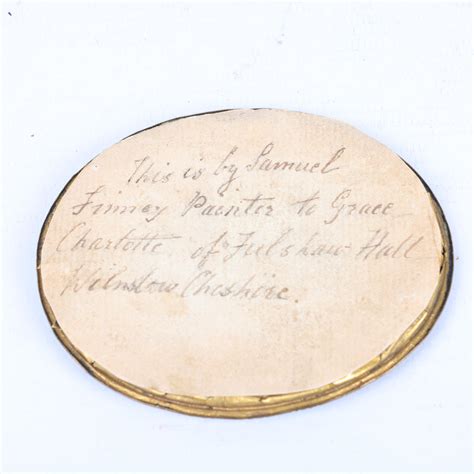 This is by Samuel
Finney Painter to Grace
Charlotte of Fulshaw Hall
Wilmslow Cheshire.